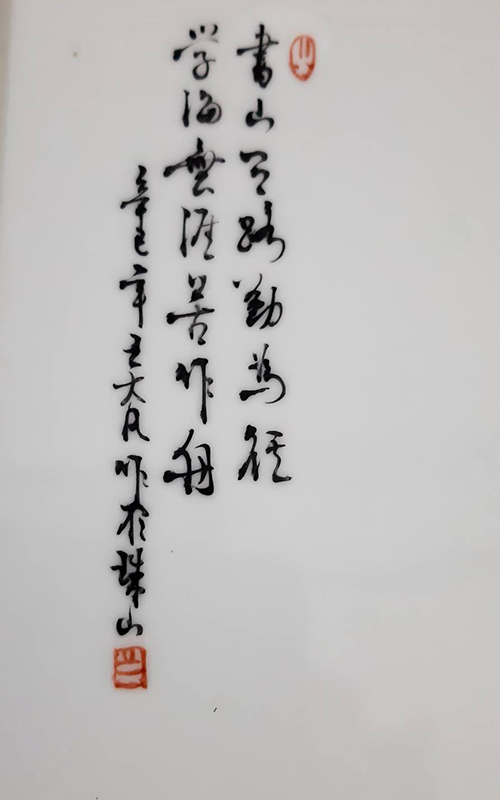 書山有路勤為徑
学海無涯苦作舟
辛巳年王大凡作於珠山